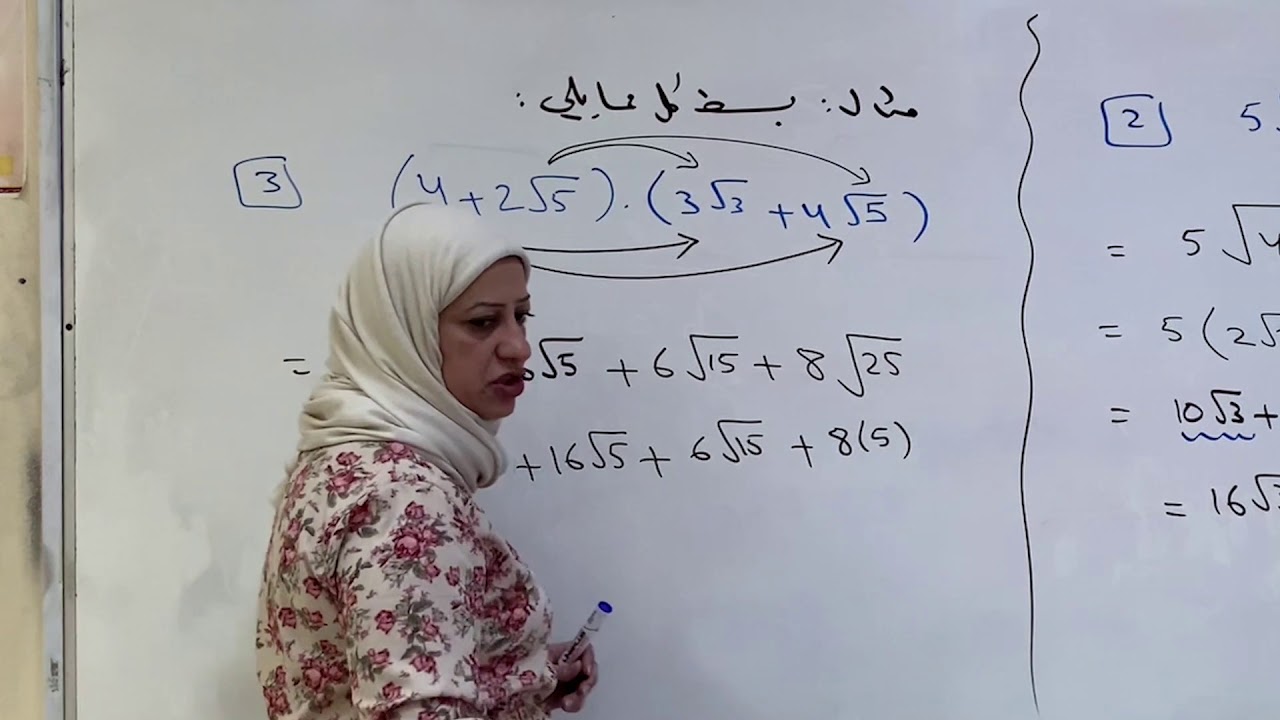 مثال: بسط كل مما يلي:
3 (4+2√5).(3√3+4√5)
= √5 + 6√15 + 8√25
+16√5 + 6√15 + 8(5)
2 5
= 5√4
= 5(2√
= 10√3 +
= 16√3